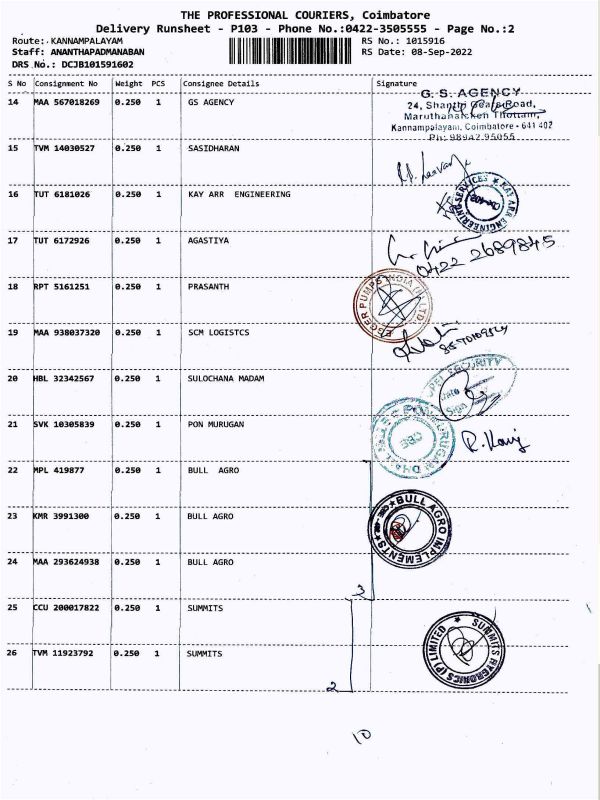 THE PROFESSIONAL COURIERS, Coimbatore
Delivery Runsheet - P103 - Phone No.:0422-3505555 - Page No.:2
Route: KANNAMPALAYAM RS No.: 1015916
Staff: ANANTHAPADMANABAN RS Date: 08-Sep-2022
DRS No.: DCJB101591602
S No Consignment No Weight PCS Consignee Details Signature
14 MAA 567018269 0.250 1 GS AGENCY
G. S. AGENCY
24, Shanthi Road,
Kannampalayam, Coimbatore - 641 402
Ph: 98942 95055
15 TVM 14030527 0.250 1 SASIDHARAN
16 TUT 6181026 0.250 1 KAY ARR ENGINEERING
KAY ARR ENGINEERING SERVICES
17 TUT 6172926 0.250 1 AGASTIYA
0422 2689845
18 RPT 5161251 0.250 1 PRASANTH
PUMPS INDIA (P) LTD.
19 MAA 938037320 0.250 1 SCM LOGISTCS
20 HBL 32342567 0.250 1 SULOCHANA MADAM
SECURITY
Date
Sign
21 SVK 10305839 0.250 1 PON MURUGAN
CBE
R. Kavi
22 MPL 419877 0.250 1 BULL AGRO
23 KMR 3991300 0.250 1 BULL AGRO
BULL AGRO IMPLEMENTS
24 MAA 293624938 0.250 1 BULL AGRO
3
25 CCU 200017822 0.250 1 SUMMITS
26 TVM 11923792 0.250 1 SUMMITS
SUMMITS HYGRONICS (P) LIMITED
2
10